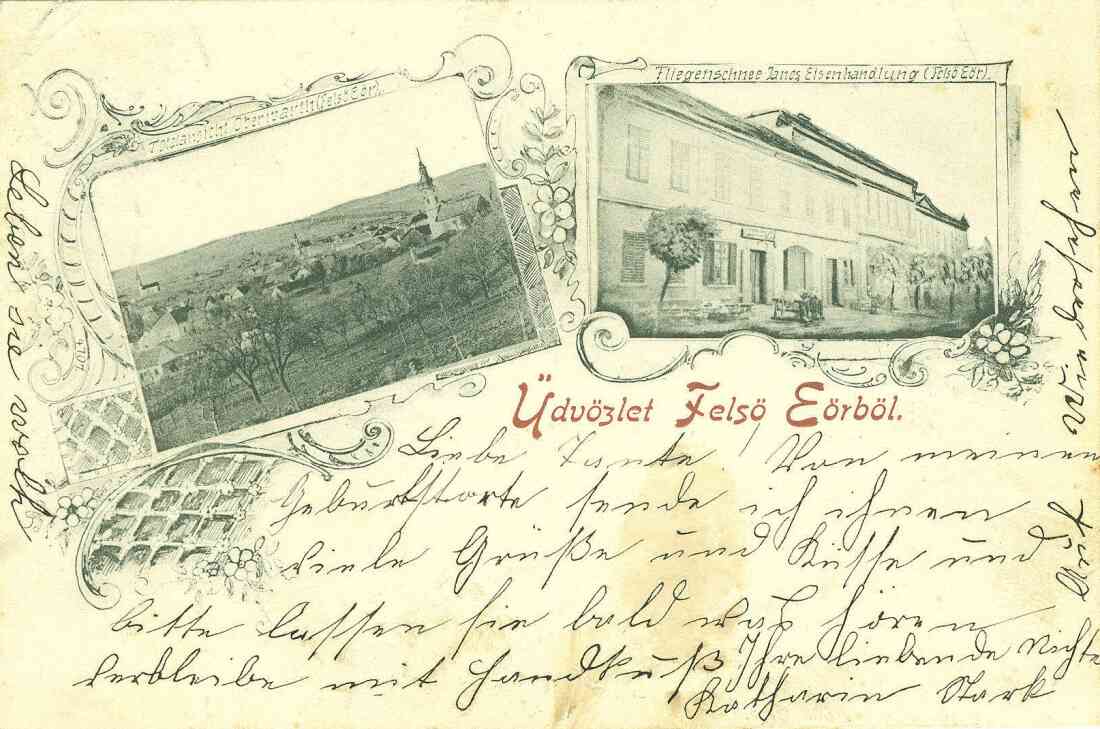 Totalansicht Oberwarth (Felső Eör).
Fliegenschnee Janos Eisenhandlung (Felső Eör).
Üdvözlet Felsö Eörböl.
Liebe Tante! Von meinen
Geburtstorte sende ich ihnen
viele Grüße und Küsse und
bitte lassen sie bald was hören
verbleibe mit Handkuß Ihre liebende Nichte
Katharin Stark
Leben sie wohl
Auf